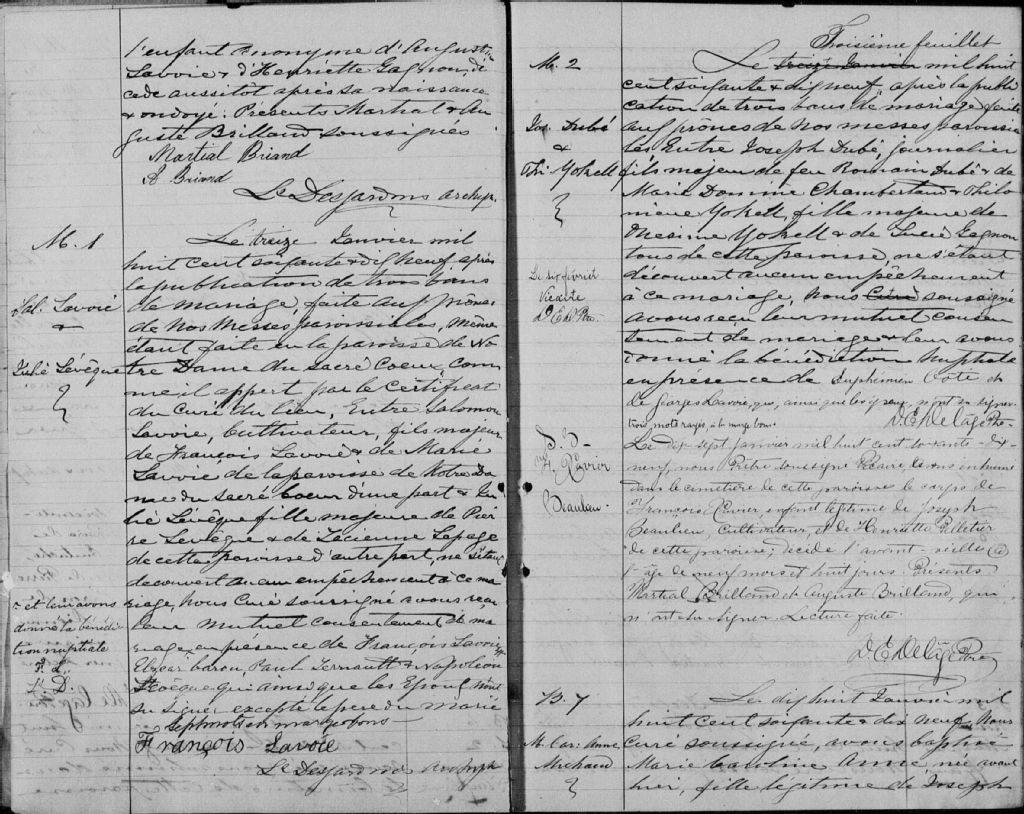 l'enfant anonyme d'Augustin
Lavoie & d'Henriette Gagnon, dé
cédé aussitot après sa naissance
& ondoyé: Présents Martial & Au
guste Brilland soussignés
Martial Briand
A Briand
Ls Desjardins archip.
M. 1
Sal. Lavoie
&
Julie Lévêque
Le treize Janvier mil
huit cent soixante & dix neuf, après
la publication de trois bans
de mariage, faite aux prônes
de Nos Messes paroissiales, même
étant faite en la paroisse de No
tre Dame du Sacré Coeur, com
me il appert par le certificat
du Curé du lieu, Entre Salomon
Lavoie, Cultivateur, fils majeur
de François Lavoie & de Marie
Lavoie de la paroisse de Notre Da
me du Sacré Coeur d'une part & Ju
lie Lévêque fille majeure de Pier
re Levêque & de Lucienne Lepage
de cette paroisse d'autre part, ne s'étant
découvert aucun empêchement à ce ma
riage, Nous Curé soussigné avons reçu
leur mutuel consentement de ma
riage, en présence de François Lavoie
Elzear baron, Paul Terriault & Napoléon
Levêque, qui ainsi que les Epoux n'ont
su signer excepté le père du marié
Sept mots en marge bons
& et leur avons
donné la bénédic
tion nuptiale
F. L.
L. D.
François Lavoie
Ls Desjardins archip
Troisième feuillet
M. 2
Jos. Dubé
&
Phi. Yokell
Le six février
Vicaire
D. E. D. Ptre
Le treize Janvier mil huit
cent soixante & dix neuf, après la publi
cation de trois bans de mariage faite
aux prônes de Nos messes paroissia
les Entre Joseph Dubé, journalier
fils majeur de feu Romain Dubé & de
Marie Domine Chamberland & Philo
mène Yokell, fille majeure de
Onésime Yokell & de Lucie Gagnon
tous de cette paroisse, ne s'étant
découvert aucun empêchement
à ce mariage, Nous Curé soussigné
avons reçu leur mutuel consen
tement de mariage & leur avons
donné la bénédiction nuptiale
en présence de Euphémien Coté et
de Georges Lavoie, qui, ainsi que les époux, n'ont su signer
trois mots rayés, à la marge bons.
D. E. Delâge Ptre
S. 3
F. Xavier
Beaulieu
Le dix-sept janvier mil huit cent soixante-dix-
neuf, nous Prêtre soussigné Vicaire, avons inhumé
dans le cimetière de cette paroisse le corps de
François Xavier, enfant légitime de Joseph
Beaulieu, Cultivateur, et de Henriette Pelletier
de cette paroisse; décédé l'avant-veille à
l'âge de neuf mois et huit jours. Présents
Martial Brilland et Auguste Brilland, qui
n'ont su signer. Lecture faite.
D. E. Delâge Ptre
B. 4
M. Car. Anne
Michaud
Le dix huit Janvier mil
huit cent soixante & dix neuf, Nous
Curé soussigné, avons baptisé
Marie Caroline Anne née avant
hier, fille légitime de Joseph